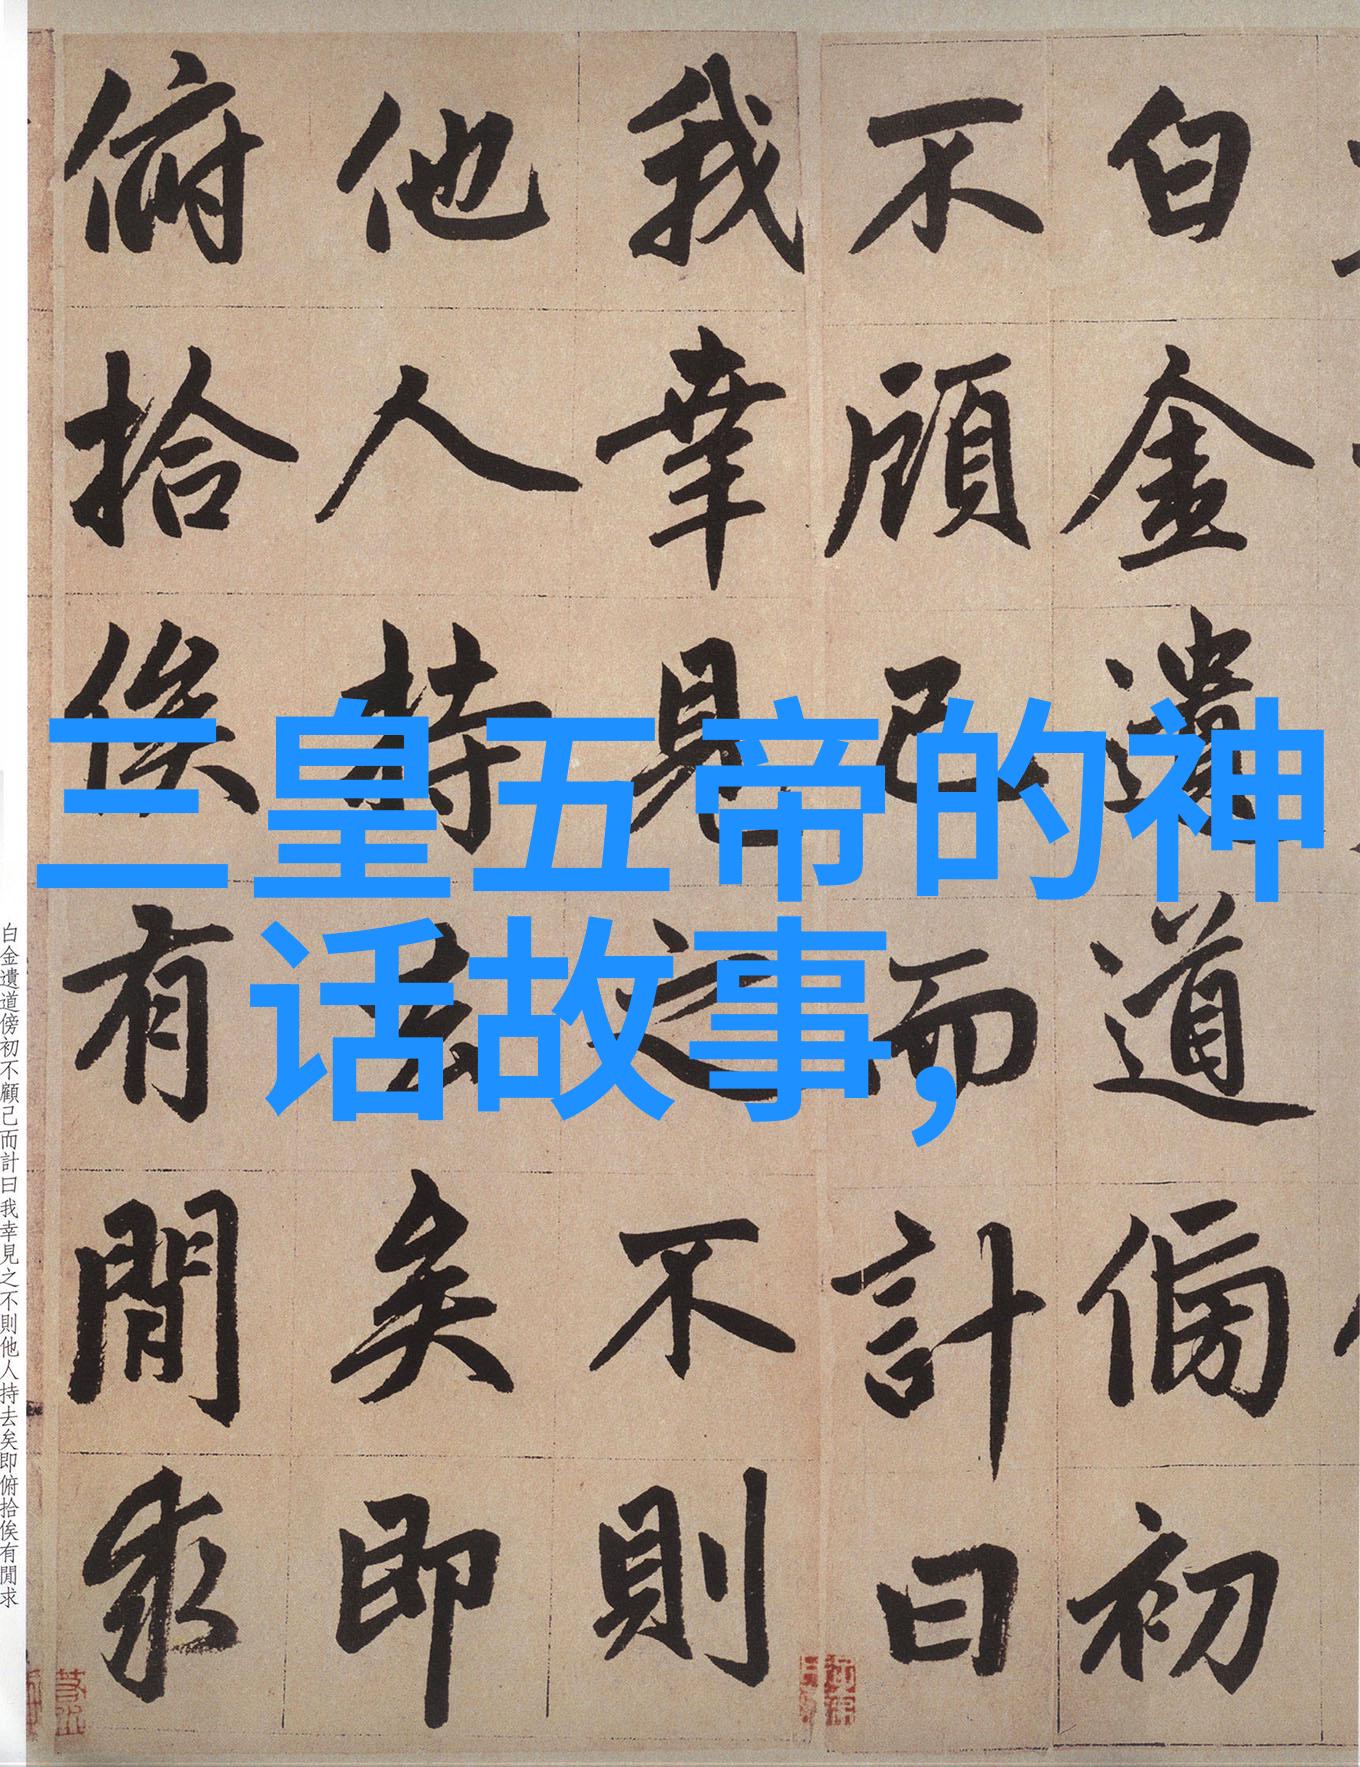 白金遺道傍初
不顧己而計曰
我幸見之不則
他人持去矣即
俯拾俟有閒求
三皇五帝的神
话故事，
白金遺道傍初不顧己而計曰我幸見之不則他人持去矣即俯拾俟有閒求